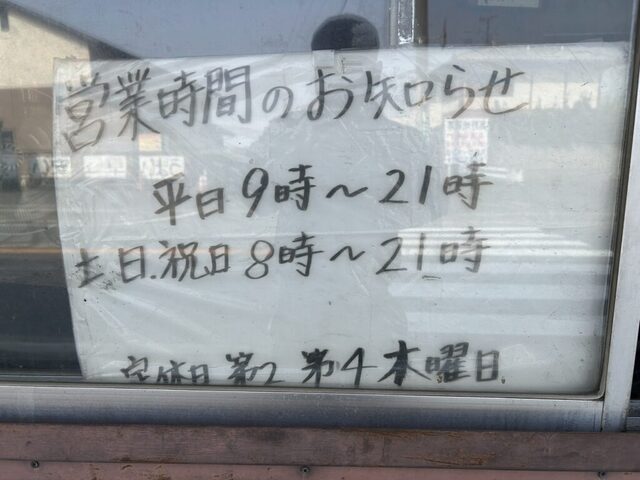 営業時間のお知らせ
平日9時～21時
土日.祝日8時～21時
定休日 第2 第4 木曜日